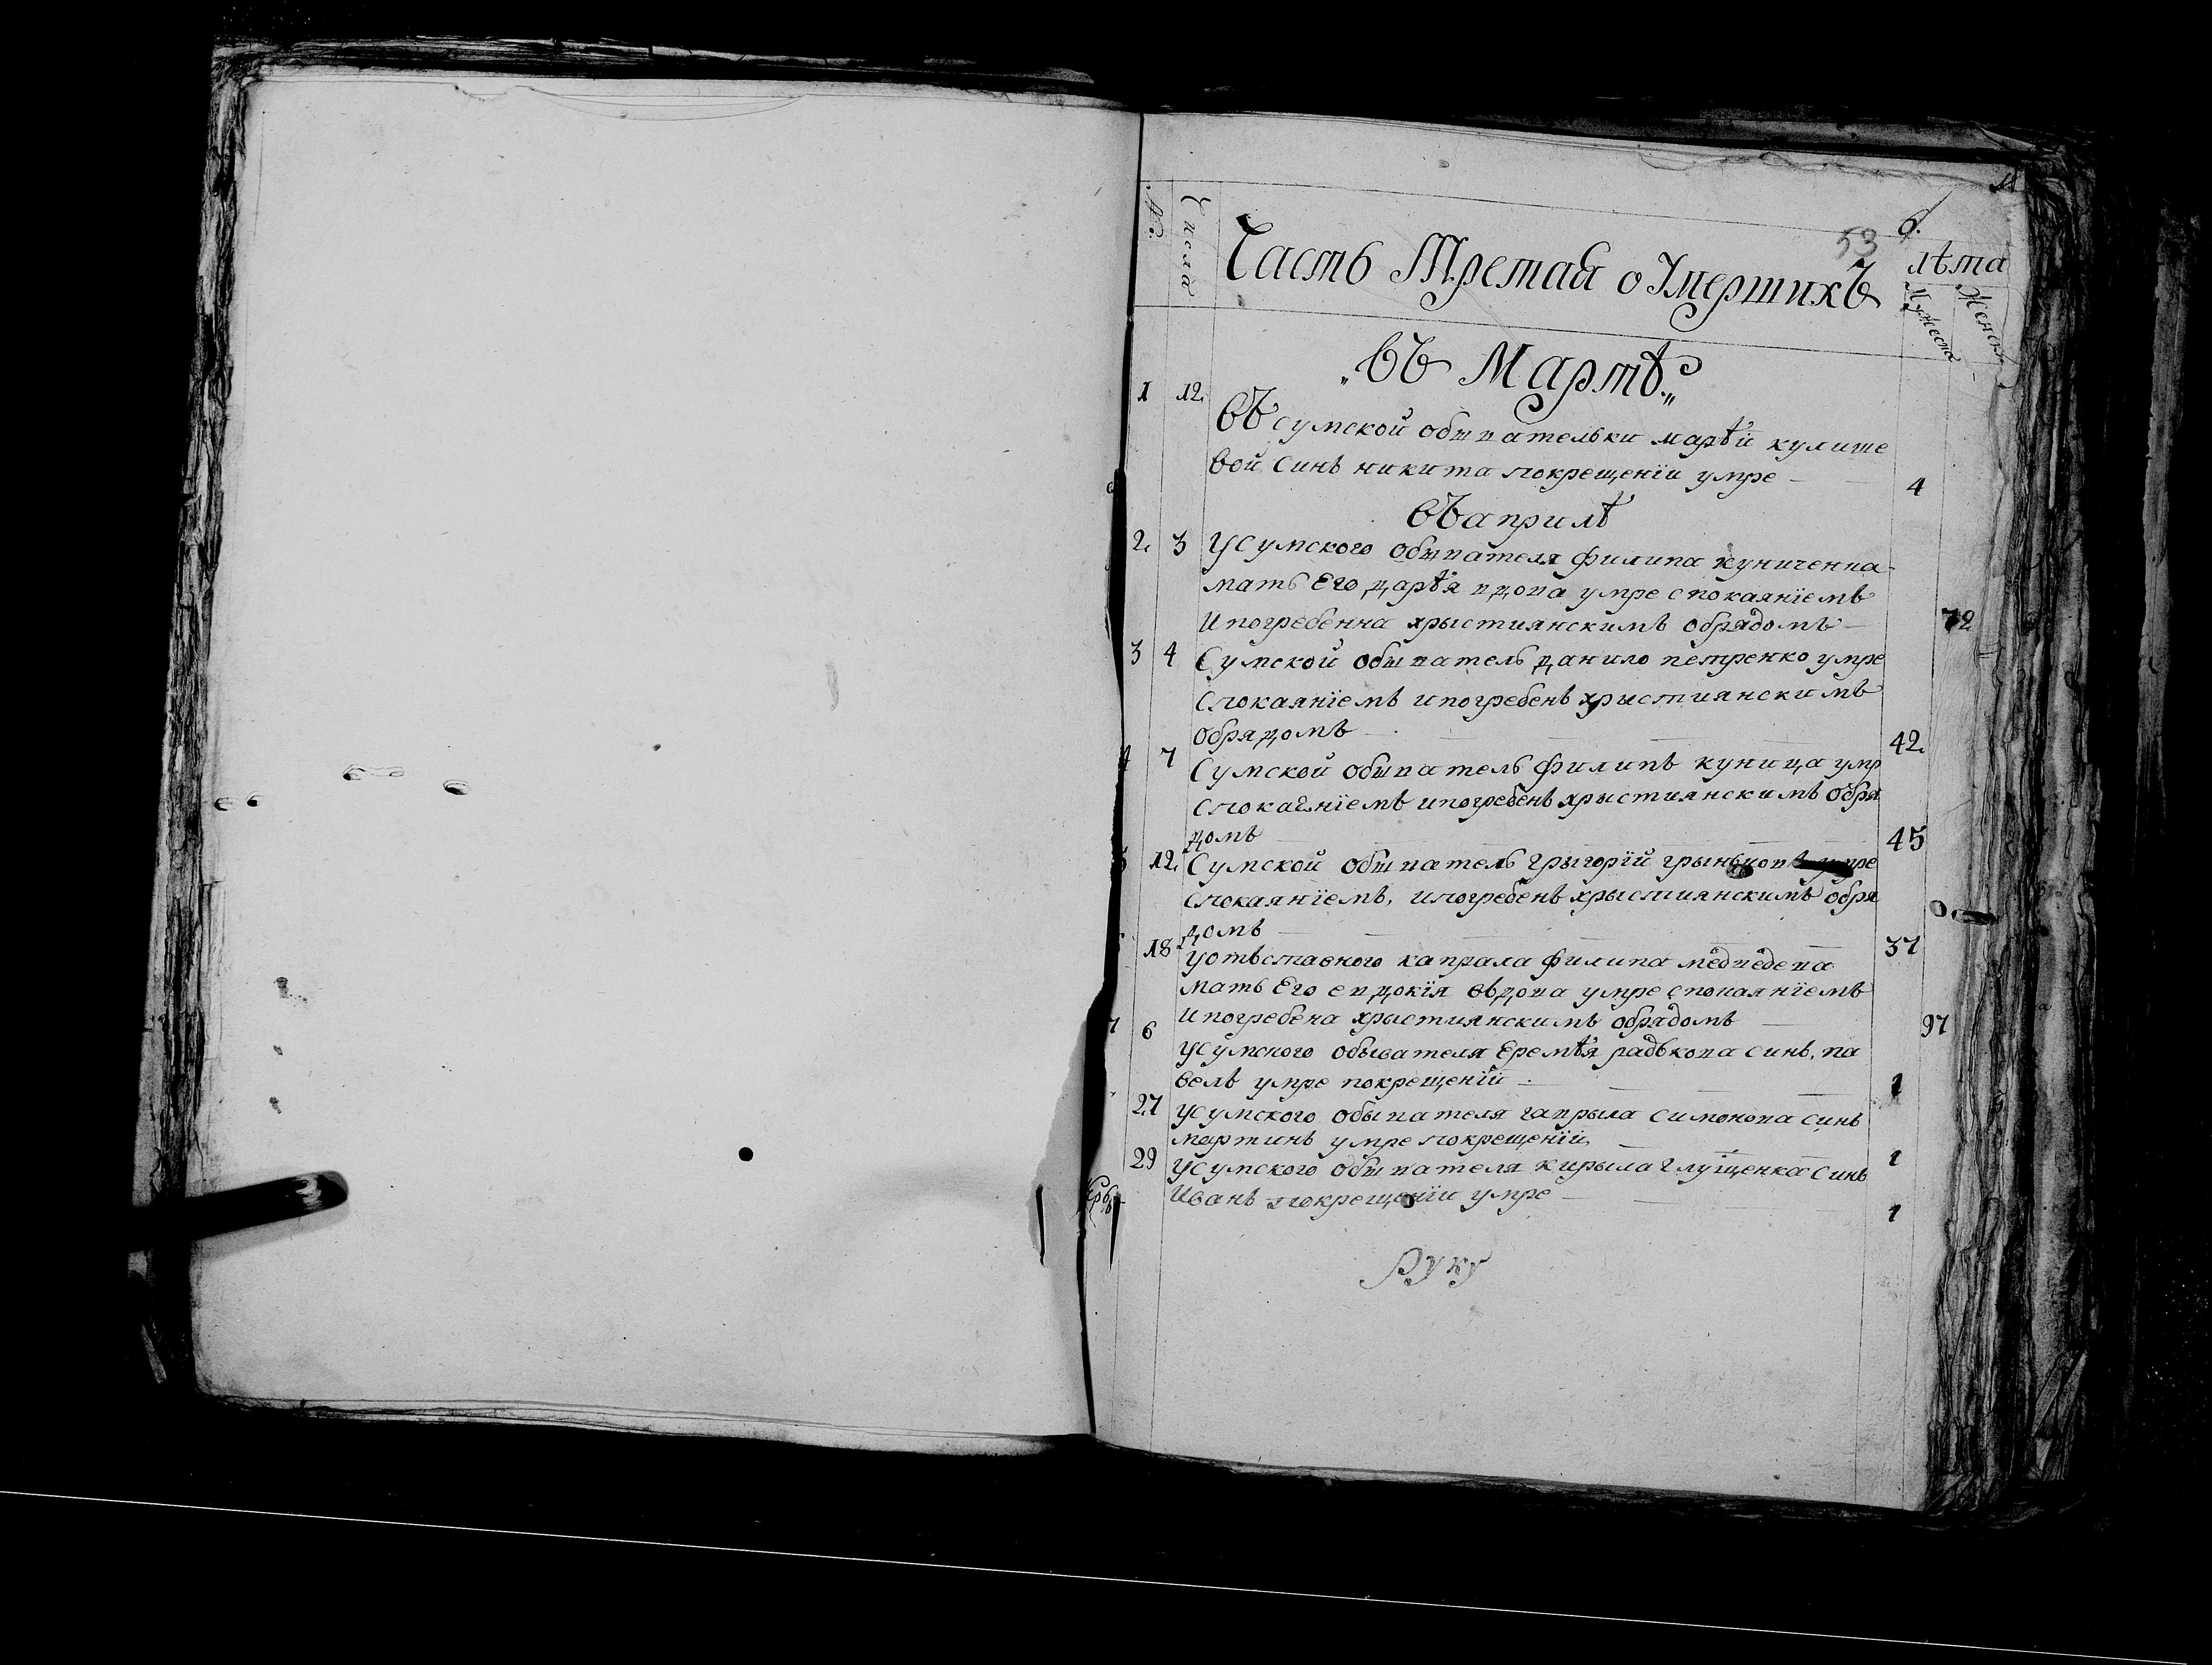 №.
Числа
Часть Третаѧ о Умершихъ
53
6.
лѣта
Мужеска
Женск
„Въ Мартѣ„
1 12. Въ сумской обывательки марѣй кулише
вой синъ никита покрещенїи умре 4
Въ априлѣ
2. 3 У сумского обывателя филипа куниченка
мать Его дарѣя вдова умре спокаянїемъ
И погребенна хрыстиянскимъ обрядомъ 72
3 4 Сумской обыватель данило петренко умре
спокаянїемъ и погребенъ хрыстиянскимъ
обрядомъ 42.
4 7 Сумской обыватель филипъ куница умр
спокаянїемъ и погребенъ хрыстиянскимъ обря
домъ 45
5 12. Сумской обыватель грыгорїй грыньковъ умре
спокаянїемъ, и погребенъ хрыстиянскимъ обря
домъ 37
18 У отъставного капрала филипа медведева
мать Его евдокїя овдова умре спокаянїемъ
и погребена хрыстиянскимъ обрядомъ 97
7 6 У сумского обывателя Еремѣя радькова синъ, па
велъ умре покрещенїи 1
27 У сумского обывателя гаврыла симонова синъ
мартинъ умре покрещенїи 1
29 У сумского обывателя кирыла глущенка синъ
Иванъ покрещенїи умре 1
Руку